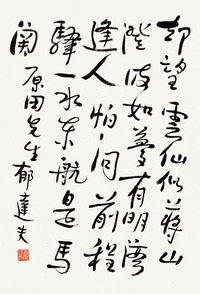 却望雲仙似蔣山
澄波如夢有明灣
逢人怕問前程
驛一水東航是馬
關 原田先生 郁達夫